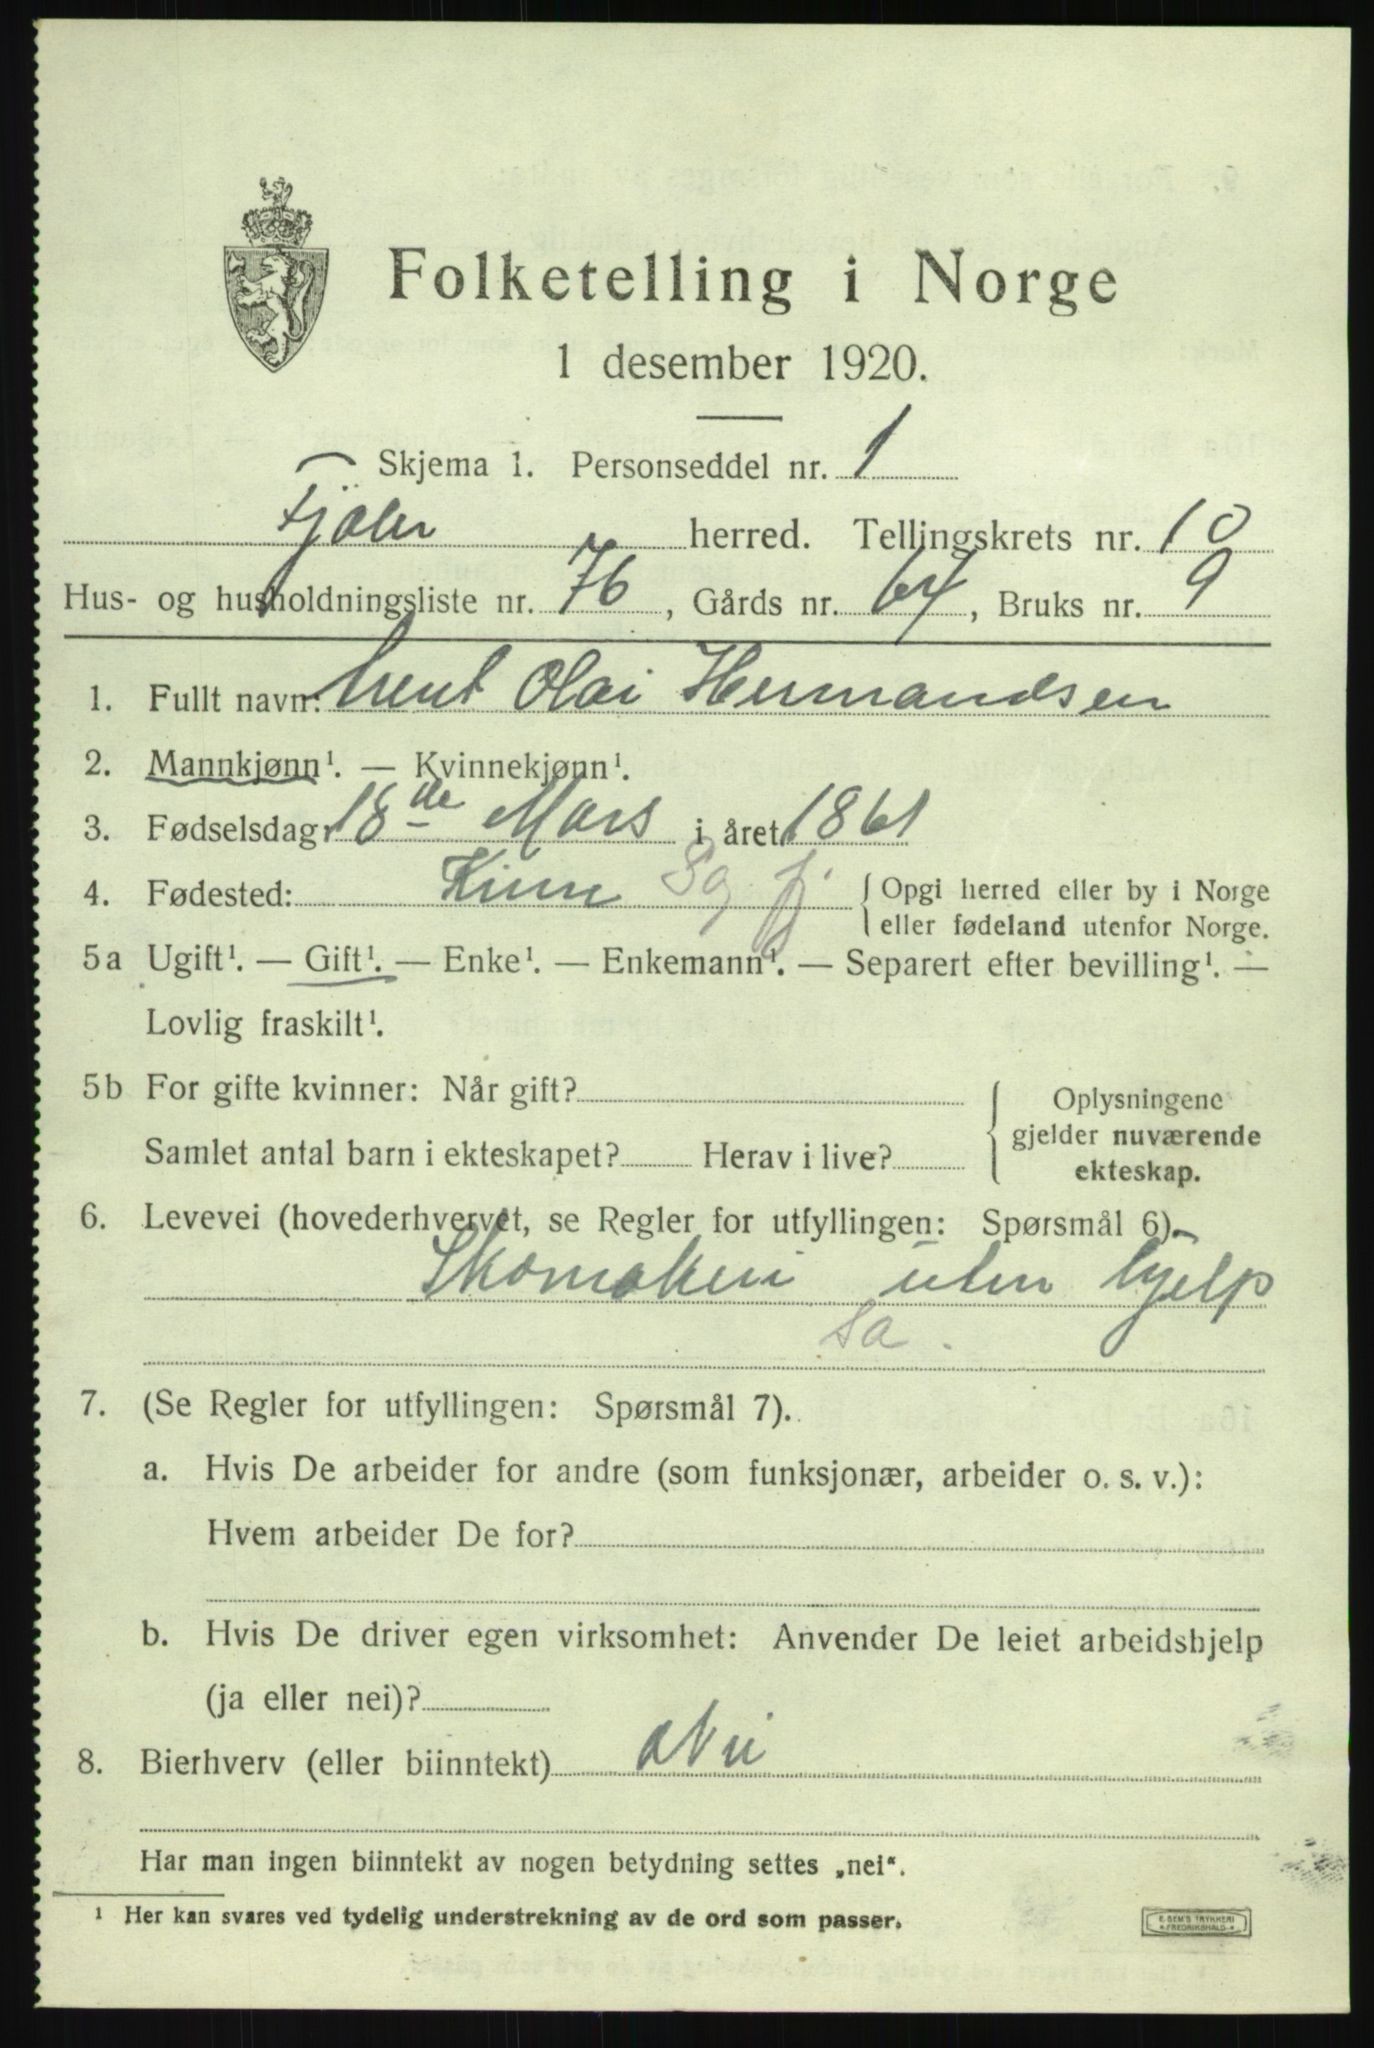 Folketelling i Norge
1 desember 1920.
Skjema 1. Personseddel nr. 1
Fjaler herred. Tellingskrets nr. 10
Hus- og husholdningsliste nr. 76, Gårds nr. 64, Bruks nr. 9
1. Fullt navn: Olai Hermandsen
2. Mannkjønn¹. — Kvinnekjønn¹.
3. Fødselsdag: 18de Mars i året 1861
4. Fødested: Kinn Sg. fj. { Opgi herred eller by i Norge
eller fødeland utenfor Norge.
5a Ugift¹. — Gift¹. — Enke¹. — Enkemann¹. — Separert efter bevilling¹. —
Lovlig fraskilt¹.
5b For gifte kvinner: Når gift?
Samlet antal barn i ekteskapet? Herav i live?
Oplysningene
gjelder nuværende
ekteskap.
6. Levevei (hovederhvervet, se Regler for utfyllingen: Spørsmål 6).
Skomakeri uten hjelp
Sa.
7. (Se Regler for utfyllingen: Spørsmål 7).
a. Hvis De arbeider for andre (som funksjonær, arbeider o. s. v.):
Hvem arbeider De for?
b. Hvis De driver egen virksomhet: Anvender De leiet arbeidshjelp
(ja eller nei)?
8. Bierhverv (eller biinntekt) Nei
Har man ingen biinntekt av nogen betydning settes „nei“.
¹ Her kan svares ved tydelig understrekning av de ord som passer.
E. SEM'S TRYKKERI
* FREDRIKSHALD *